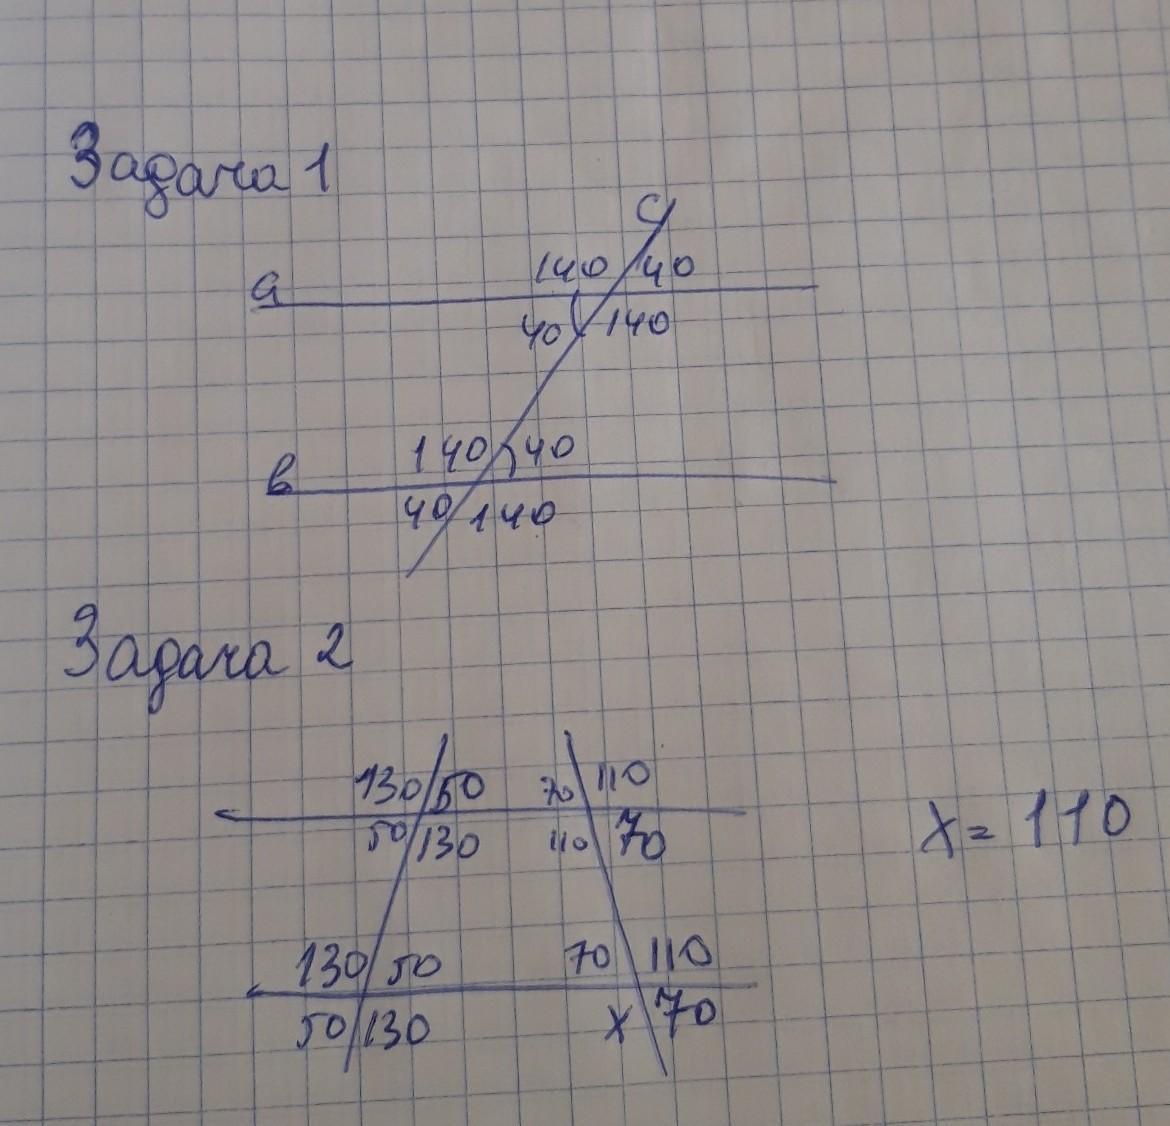 Задача 1
c
140 40
a
40 140
140 40
в
40 140
Задача 2
130 50 70 110
50 130 110 70
x = 110
130 50 70 110
50 130 x 70